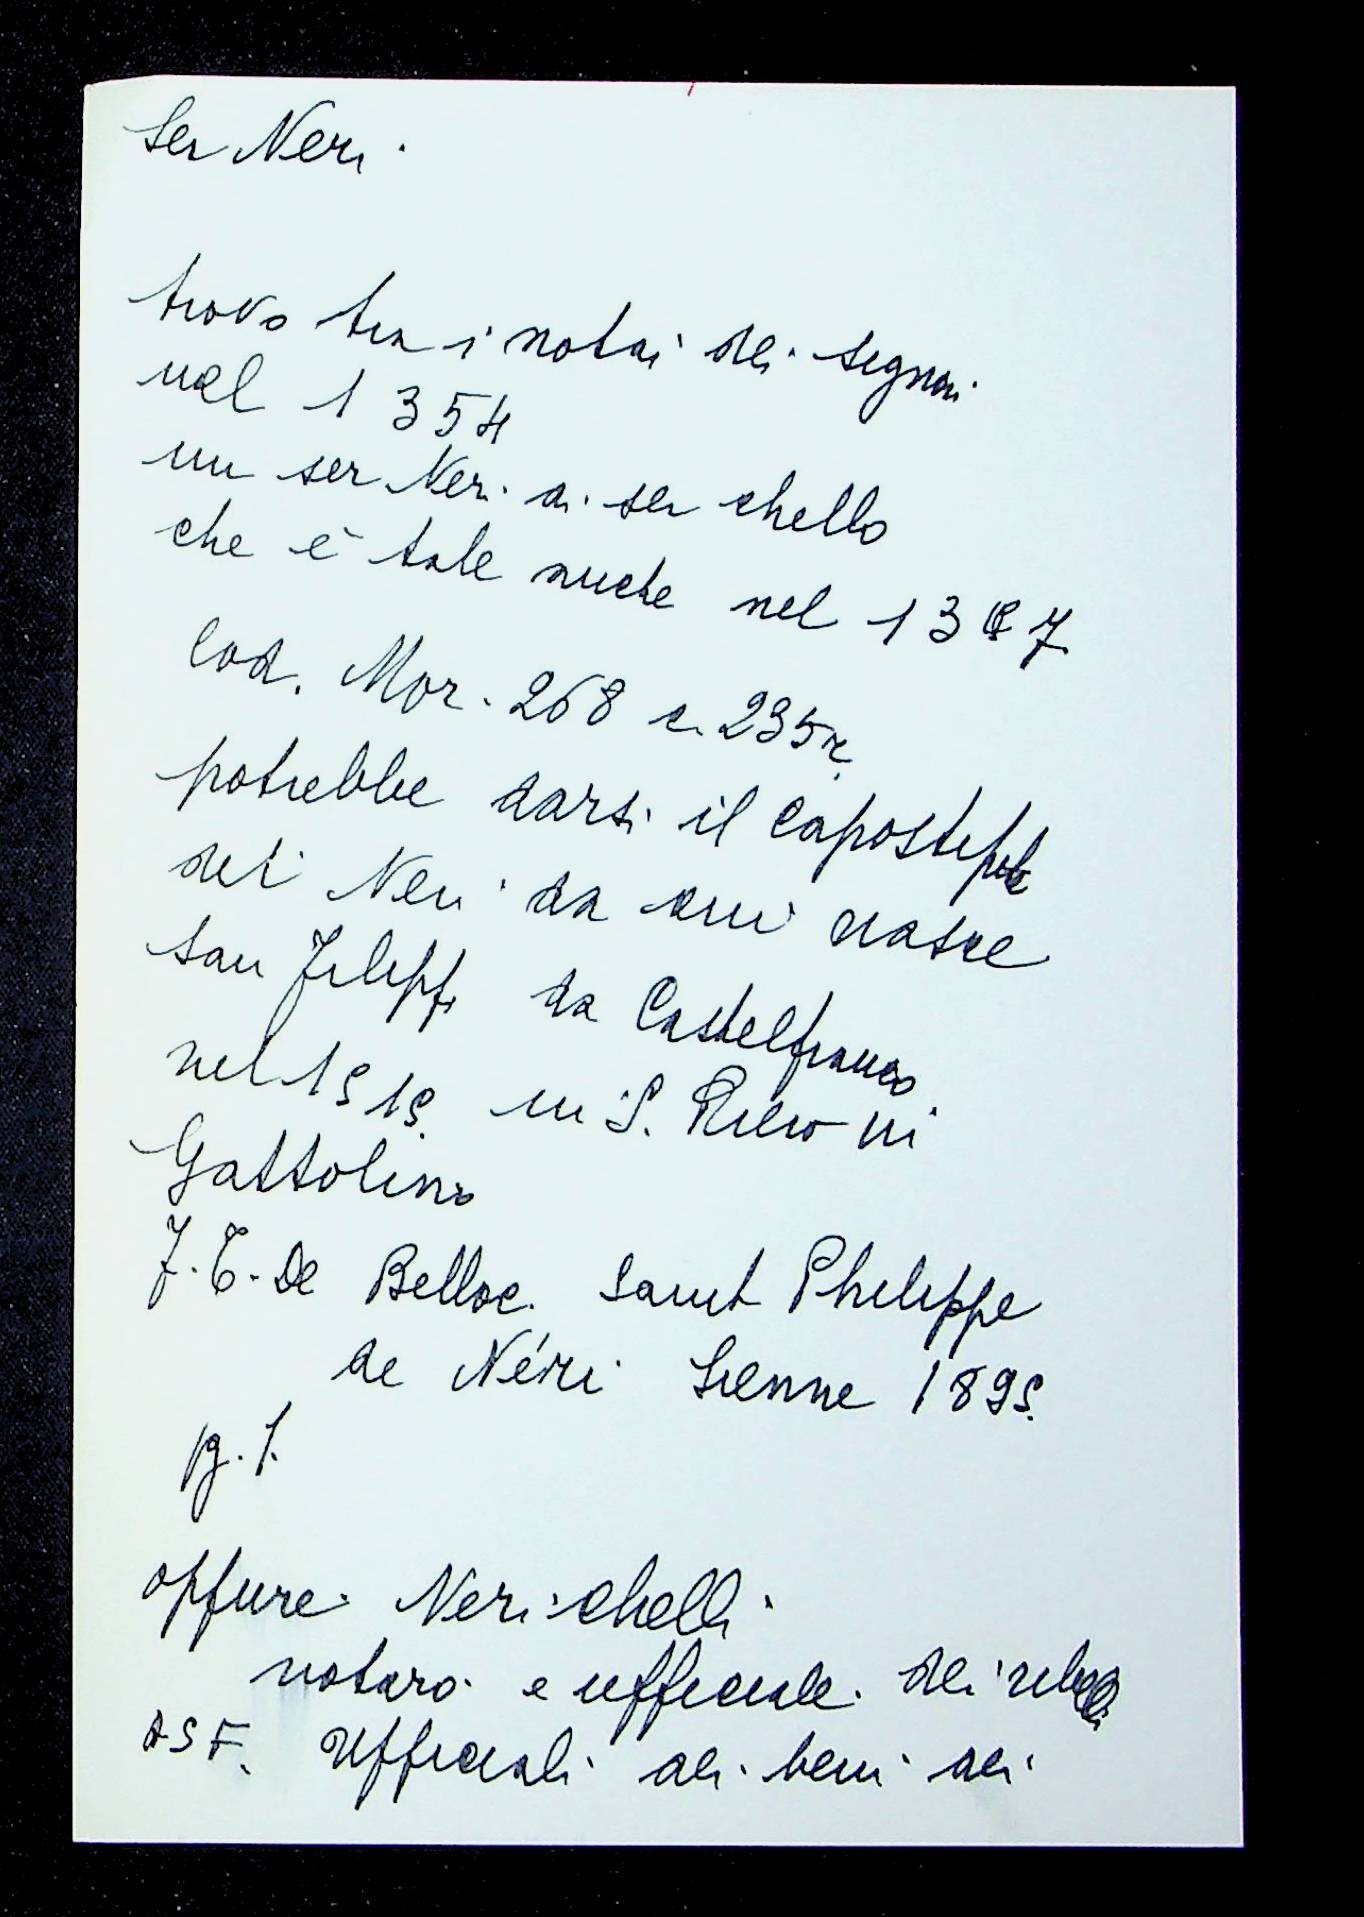 Ser Neri
trovo tra i notai dei signori
nel 1354
un ser Neri di ser Chello
che è tale anche nel 13 7
Cod. Mor. 268 c. 235r.
potrebbe darsi il capostipite
dei Neri da cui nasce
san Filippo da Castelfranco
nel 1515 in S. Piero in
Gattolino
F. T. De Belloc. Saint Philippe
de Néri Sienne 1895.
pg. 1.
oppure Neri Chelli
notaro e ufficiale dei ribelli
ASF. Ufficiali dei beni dei